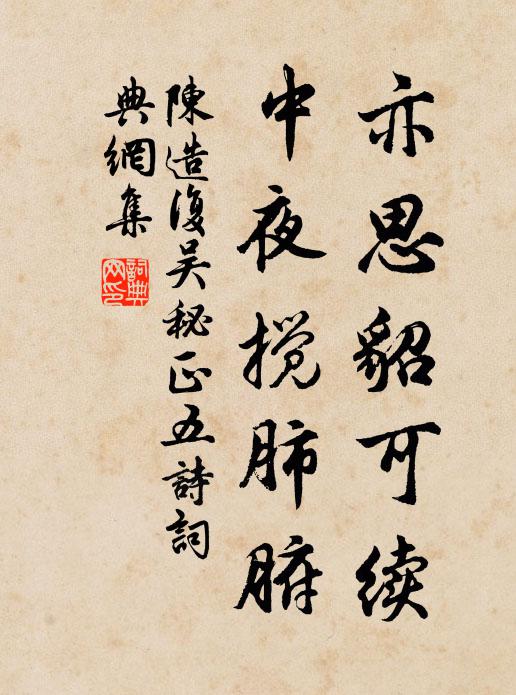 亦思貂可续
中夜搅肺腑
陳造復吴秘正五詩詞
典網集
詞典
网印